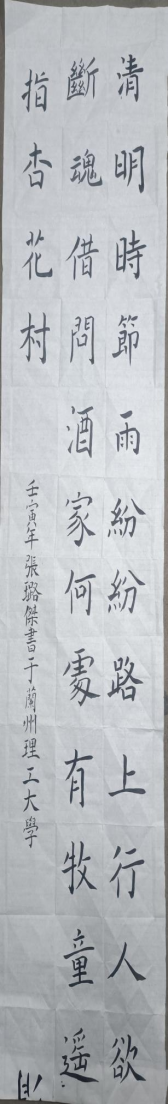 清明時節雨紛紛路上行人欲
斷魂借問酒家何處有牧童遥
指杏花村
壬寅年張璐傑書于蘭州理工大學